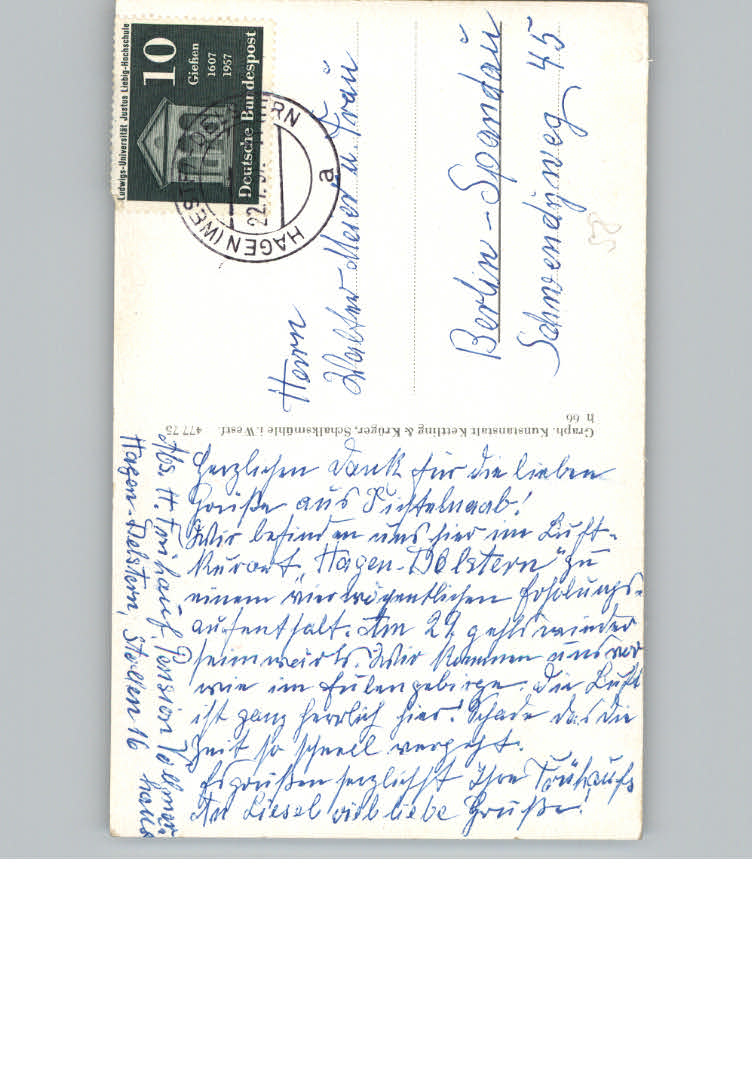 Ludwigs-Universität Justus Liebig-Hochschule
10
Gießen
1607
1957
Deutsche Bundespost
HAGEN (WESTF)
22.7.57
a
Herrn
Walter Meier u. Frau
Berlin-Spandau
Schwendyweg 45
Graph. Kunstanstalt Kettling & Krüger, Schalksmühle i. Westf. 477 75
h 66
Abs. H. Frühauf, Pension Vollmer
Hagen-Delstern, Staplen 16
Herzlichen Dank für die lieben
Grüße aus Fichtelnaab!
Wir befinden uns hier im Luft-
kurort "Hagen-Delstern" zu
einem vierwöchentlichen Erholungs-
aufenthalt. Am 29. gehts wieder
heimwärts. Wir kommen uns vor
wie im Eulengebirge. Die Luft
ist ganz herrlich hier! Schade das die
Zeit so schnell vergeht.
Es grüßen herzlichst Ihre Frühaufs
An Liesel viele liebe Grüße!